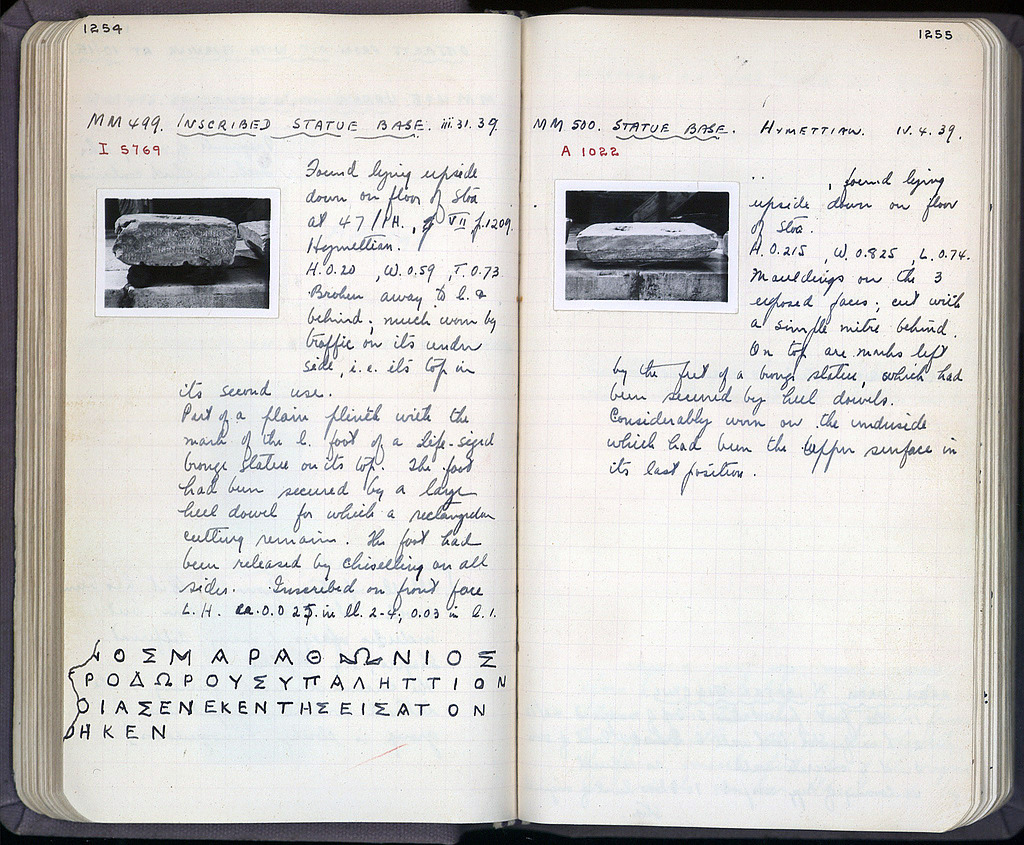 1254
MM 499. INSCRIBED STATUE BASE. iii.31.39.
I 5769
Found lying upside
down on floor of Stoa
at 47/ΙΗ., VII p.1209.
Hymettian.
H. 0.20 , W. 0.59 , T. 0.73
Broken away to l. &
behind; much worn by
traffic on its under
side, i.e. its top in
its second use.
Part of a plain plinth with the
mark of the l. foot of a life-sized
bronze statue on its top. The foot
had been secured by a large
heel dowel for which a rectangular
cutting remains. The foot had
been released by chiselling on all
sides. Inscribed on front face
L.H. ca. 0.025 in ll. 2-4; 0.03 in l. 1.
ΟΣΜΑΡΑΘΩΝΙΟΣ
ΡΟΔΩΡΟΥΣΥΠΑΛΗΤΤΙΟΝ
ΟΙΑΣΕΝΕΚΕΝΤΗΣΕΙΣΑΤΟΝ
ΗΚΕΝ
1255
MM 500. STATUE BASE. HYMETTIAN. IV.4.39.
A 1022
, found lying
upside down on floor
of Stoa.
H. 0.215 , W. 0.825 , L. 0.74.
Mouldings on the 3
exposed faces; cut with
a simple mitre behind.
On top are marks left
by the feet of a bronze statue, which had
been secured by heel dowels.
Considerably worn on the underside
which had been the upper surface in
its last position.